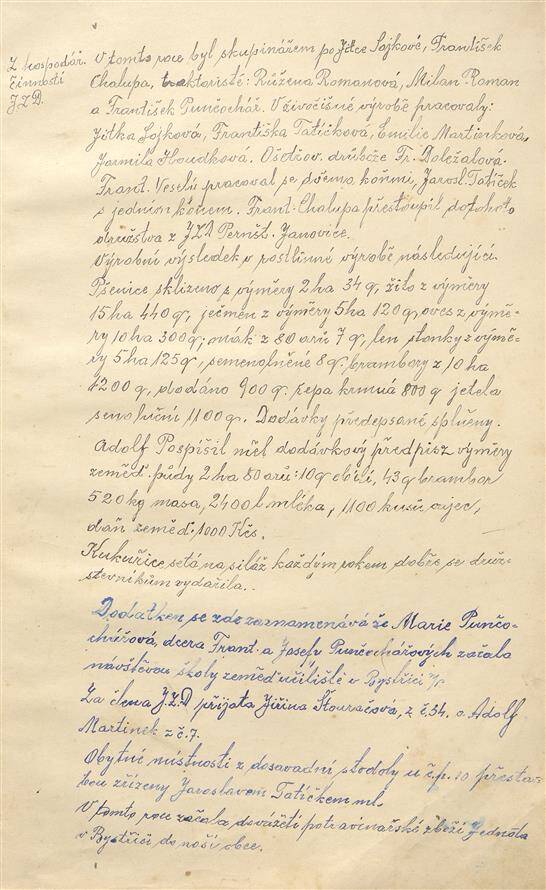 Z hospodář.
činnosti
J.Z.D.
V tomto roce byl skupinářem po Jitce Sojkové, František
Chalupa, traktoristé: Růžena Romanová, Milan Roman
a František Punčochář. V živočišné výrobě pracovaly:
Jitka Sojková, Františka Tatíčková, Emilie Martinková,
Jarmila Houdková. Ošetřov. drůbeže Fr. Doležalová.
Frant. Veselý pracoval se dvěma koňmi, Jarosl. Tatíček
s jedním koněm. Frant. Chalupa přestoupil do tohoto
družstva z JZD Pernšt. Janovice.
Výrobní výsledek v rostlinné výrobě následující:
Pšenice sklizeno s výměry 2 ha 34 q, žito z výměry
15 ha 440 q, ječmen z výměry 5 ha 120 q, oves z výmě-
ry 10 ha 300 q; mák z 80 arů 7 q, len stonky z výmě-
ry 5 ha 125 q, semenolněné 8 q. brambory z 10 ha
1200 q, dodáno 900 q. řepa krmná 800 q jetela
seno luční 1100 q. Dodávky předepsané splněny.
Adolf Pospíšil měl dodávkový předpis z výměry
zeměd. půdy 2 ha 80 arů: 10 q obilí, 43 q brambor
520 kg masa, 2400 l mléka, 1100 kusů vajec,
daň zeměd. 1000 Kčs.
Kukuřice setá na siláž každým rokem dobře se druž-
stevníkům vydařila..
Dodatkem se zde zaznamenává že Marie Punčo-
chářová, dcera Frant. a Josefy Punčochářových začala
návštěvou školy zeměd. učiliště v Bystřici n/P.
Za člena J.Z.D přijata Jiřina Štouračova, z č. 54. a Adolf
Martinek z č. 7.
Obytné místnosti z dosavadní stodoly u č.p. 10 přestav-
bou zřízeny Jaroslavem Tatíčkem ml.
V tomto roce začala dovážeti potravinářské zboží Jednota
v Bystřici do naší obce.